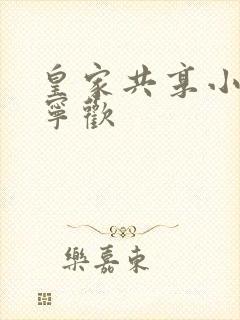 皇家共享小
寧歡
樂嘉東